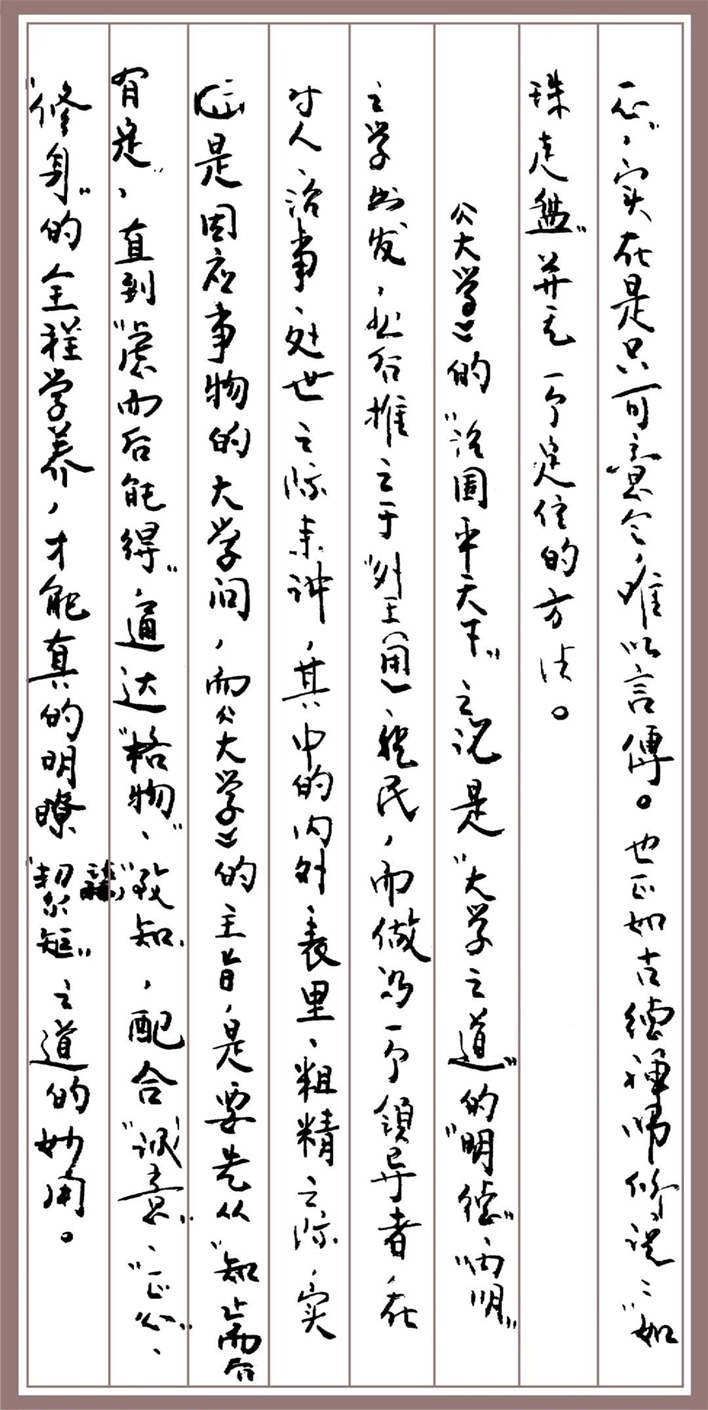 心”，实在是只可意会，难以言傳。也正如古德禅师所说：“如
珠走盘”并无一个定住的方法。
《大学》的“治国平天下”之说是“大学之道”的“明德”、“内明”
之学出发，然后推之于“外王（用）、親民，而做为一个領导者，在
对人、治事、处世之际来讲，其中的内外表里、粗精之际，实
是因应事物的大学问，而《大学》的主旨，是要先从“知止而后
有定”，直到“虑而后能得”，通达“格物”、“致知”，配合“诚意”、“正心”、
“修身”的全程学养，才能真的明瞭“絜矩”之道的妙用。